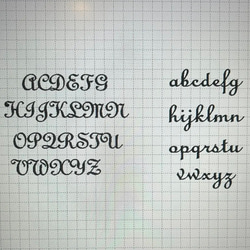 ACDEFG
HIJKLMN
OPQRSTU
VWXYZ
abcdefg
hijklmn
opqrstu
vwxyz